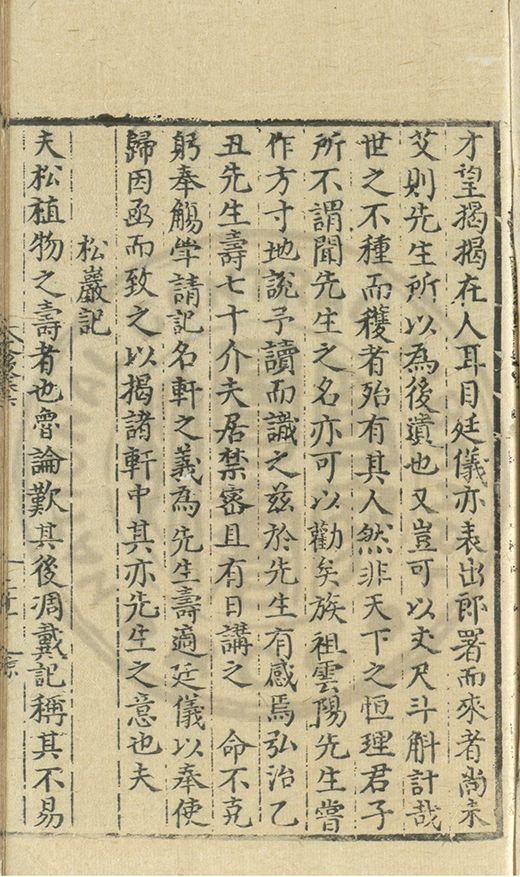 才望揭揭在人耳目廷儀亦表出郎署而來者尚未
艾則先生所以為後遺也又豈可以丈尺斗斛計哉
世之不種而穫者殆有其人然非天下之恒理君子
所不謂聞先生之名亦可以勸矣族祖雲陽先生嘗
作方寸地說予讀而識之茲於先生有感焉弘治乙
丑先生壽七十介夫居禁密且有日講之　命不克
躬奉觴斝請記名軒之義為先生壽適廷儀以奉使
歸因亟而致之以揭諸軒中其亦先生之意也夫
松巖記
夫松植物之壽者也魯論歎其後凋戴記稱其不易